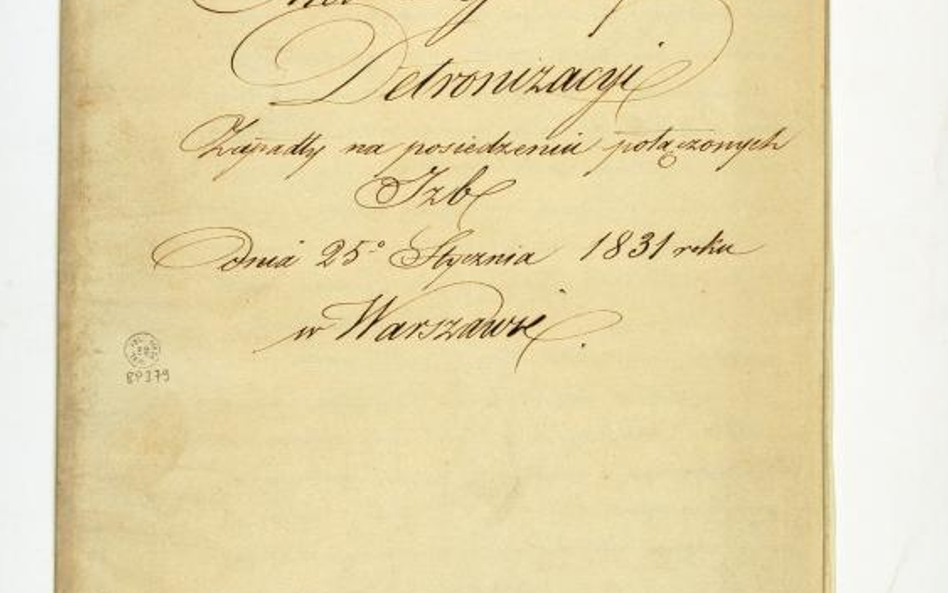 Detronizacyi
Zapadły na posiedzeniu połączonych
Izb
Dnia 25º Stycznia 1831 roku
w Warszawie.
BP379